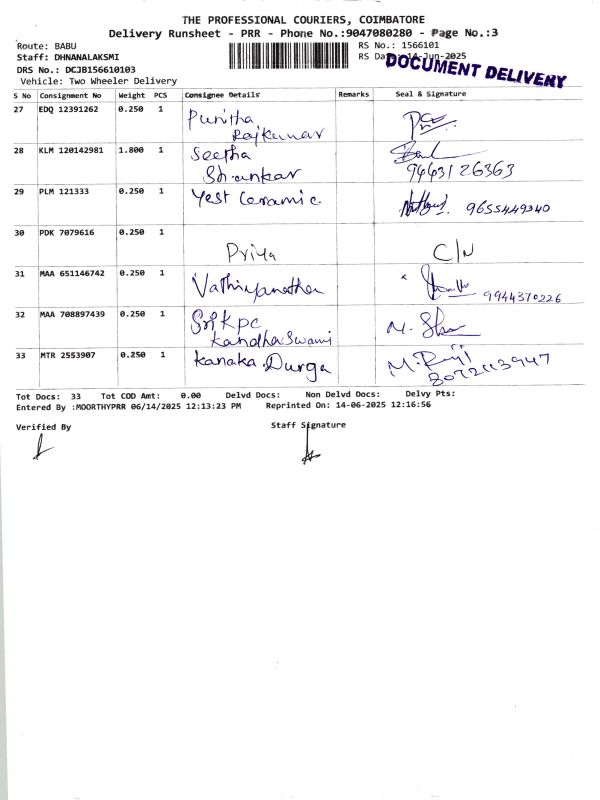 THE PROFESSIONAL COURIERS, COIMBATORE
Delivery Runsheet - PRR - Phone No.:9047080280 - Page No.:3
Route: BABU
RS No.: 1566101
Staff: DHNANALAKSMI
RS Date: 14-Jun-2025
DOCUMENT DELIVERY
DRS No.: DCJB156610103
Vehicle: Two Wheeler Delivery
S No Consignment No Weight PCS Consignee Details Remarks Seal & Signature
27 EDQ 12391262 0.250 1 Punitha
Rajkumar
28 KLM 120142981 1.800 1 Seetha
Shankar 9443126363
29 PLM 121333 0.250 1 Yest Ceramic 9655449340
30 PDK 7079616 0.250 1
Priya C/N
31 MAA 651146742 0.250 1
Vathiyanathan 9944370226
32 MAA 708897439 0.250 1 Sri KPC
Kandhaswami
33 MTR 2553907 0.250 1 Kanaka Durga
Tot Docs: 33 Tot COD Amt: 0.00 Delvd Docs: Non Delvd Docs: Delvy Pts:
Entered By :MOORTHYPRR 06/14/2025 12:13:23 PM Reprinted On: 14-06-2025 12:16:56
Verified By Staff Signature